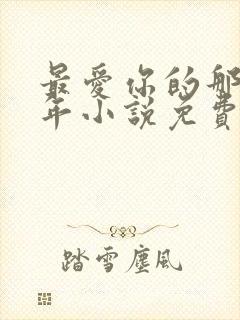 最愛你的那
年小說免費
踏雪塵風